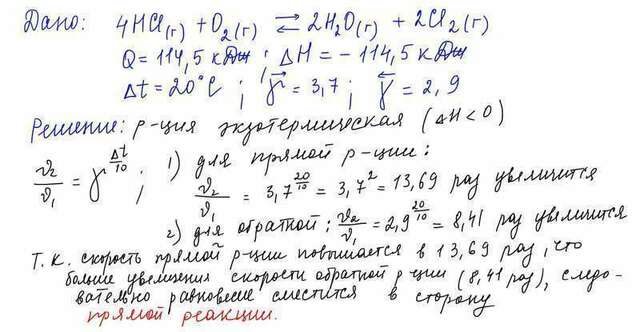 Дано: 4HCl(г) + O2(г) ⇄ 2H2O(г) + 2Cl2(г)
Q = 114,5 кДж; ΔH = -114,5 кДж
Δt = 20°C; γ→ = 3,7; γ← = 2,9
Решение: р-ция экзотермическая (ΔH < 0)
υ2/υ1 = γ^(Δt/10); 1) для прямой р-ции:
υ2/υ1 = 3,7^(20/10) = 3,7² = 13,69 раз увеличится
2) для обратной: υ2/υ1 = 2,9^(20/10) = 8,41 раз увеличится
Т. к. скорость прямой р-ции повышается в 13,69 раз, что
больше увеличения скорости обратной р-ции (8,41 раз), следо-
вательно равновесие сместится в сторону
прямой реакции.